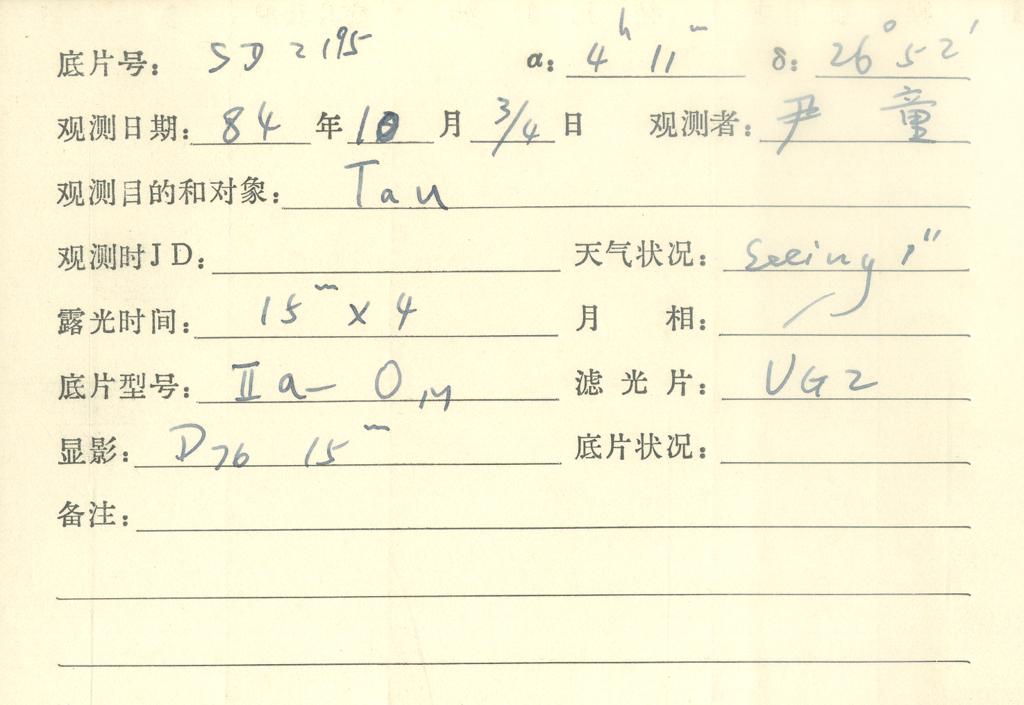 底片号: SD 2195 α: 4ʰ 11ᵐ δ: 26°52′
观测日期: 84 年 10 月 3/4 日 观测者: 尹 童
观测目的和对象: Tau
观测时JD: 天气状况: Seeing 1″
露光时间: 15ᵐ × 4 月 相:
底片型号: IIa-O, M 滤光片: UG2
显影: D76 15ᵐ 底片状况:
备注: